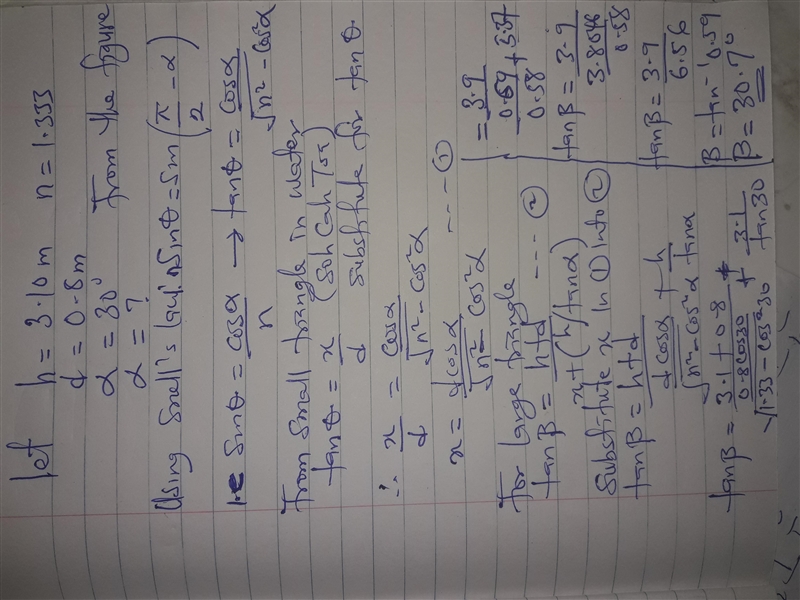 let h = 3.10m n = 1.333
d = 0.8m
α = 30°
α = ? From the figure
Using Snell's law: nSinθ = Sin(π/2 - α)
i.e Sinθ = cosα/n → tanθ = cosα/√n² - cos²α
From Small triangle in water
tanθ = x/d (Soh Cah Toa)
Substitute for tanθ
∴ x/d = cosα/√n² - cos²α
x = dcosα/√n² - cos²α --- ①
For Large triangle
tanβ = h+d/x + (h/tanα) --- ②
Substitute x in ① into ②
tanβ = h+d/dcosα/√n² - cos²α + h/tanα
tanβ = 3.1 + 0.8/0.8cos30/√1.33 - cos²30 + 3.1/tan30
= 3.9/0.69/0.58 + 5.37
tanβ = 3.9/3.8046/0.58
tanβ = 3.9/6.56
β = tan⁻¹ 0.59
β = 30.7°